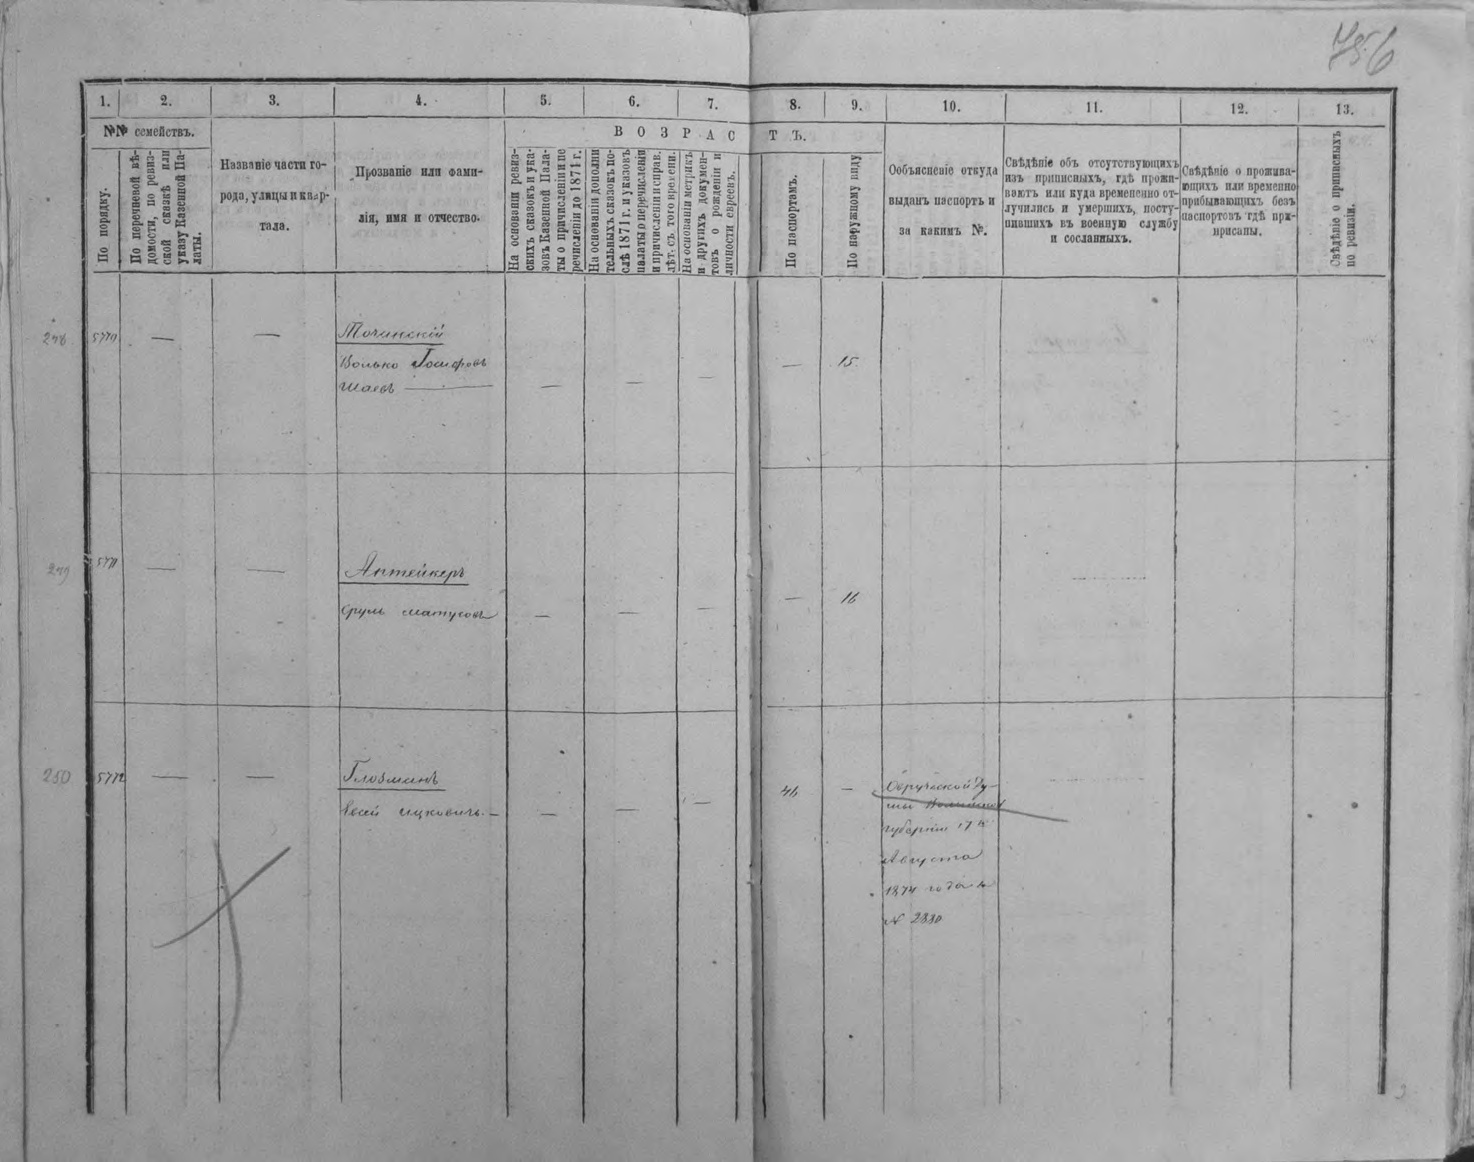 756
1.
2.
3.
4.
5.
6.
7.
8.
9.
10.
11.
12.
13.
№№ семействъ.
По порядку.
По перечневой вѣ-
домости, по ревиз-
ской сказкѣ или
указу Казенной Па-
латы.
Названіе части го-
рода, улицы и квар-
тала.
Прозваніе или фами-
лія, имя и отчество.
ВОЗРАСТЪ.
На основаніи ревиз-
скихъ сказокъ и ука-
зовъ Казенной Пала-
ты о причисленіи и пе
речисленіи до 1874 г.
На основаніи дополни
тельныхъ сказокъ по-
слѣ 1871 г. и указовъ
палаты о перечисленіи
и причисленіи и справ.
лѣт. съ того времени.
На основаніи метрикъ
и другихъ докумен-
товъ о рожденіи и
личности евреевъ.
По паспортамъ.
По наружному виду
Объясненіе откуда
выданъ паспортъ и
за какимъ №.
Свѣдѣніе объ отсутствующихъ
изъ приписныхъ, гдѣ прожи-
ваютъ или куда временно от-
лучились и умершихъ, посту-
пившихъ въ военную службу
и сосланныхъ.
Свѣдѣніе о прожива-
ющихъ или временно
прибывающихъ безъ
паспортовъ гдѣ при-
писаны.
Свѣдѣніе о приписныхъ
по ревизіи.
248
5770
—
—
Волько Іосифовъ
Шаевъ —
—
—
—
—
15.
249
5771
—
—
Аптейкеръ
Срулъ Матусовъ
—
—
—
—
16
250
5772
—
—
Глозманъ
Евсей Ицковичъ —
—
—
—
46
—
Овручской Ду-
мы Волынской
губерніи 17
Августа
1874 года
№ 2880